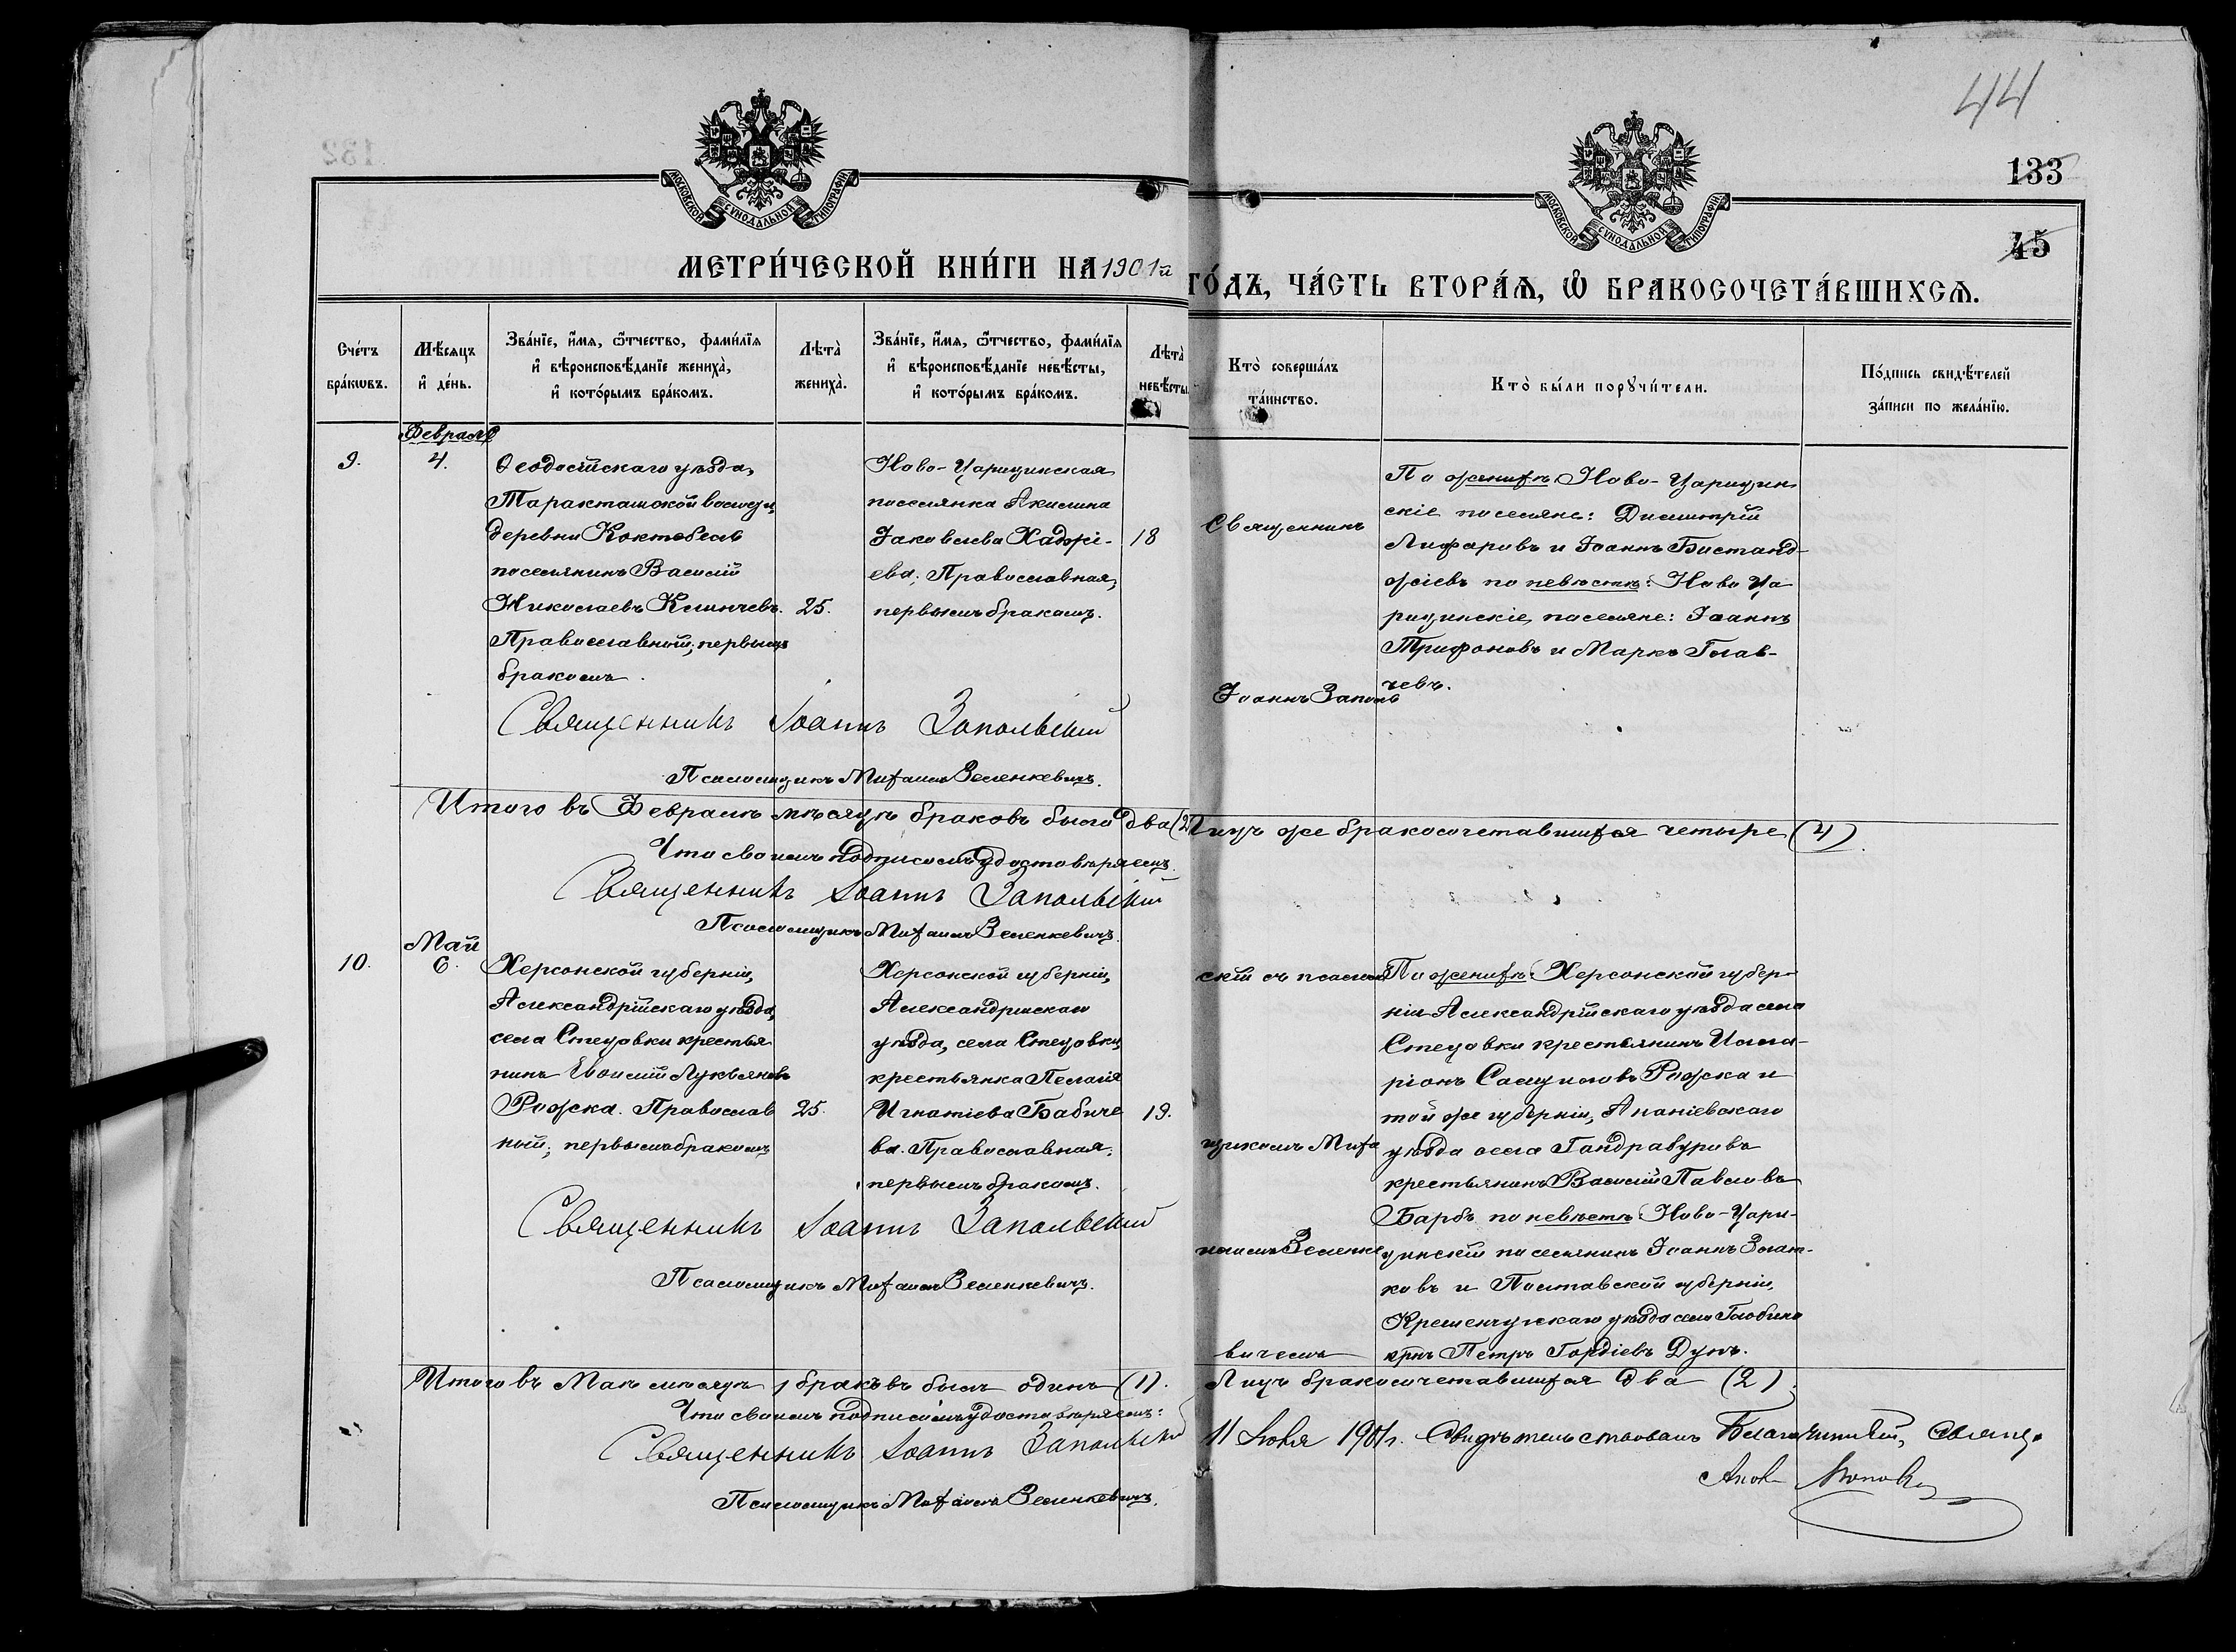 44
133
45
МОСКОВСКОЙ СѴНОДАЛЬНОЙ ТИПОГРАФІИ
МОСКОВСКОЙ СѴНОДАЛЬНОЙ ТИПОГРАФІИ
МЕТРИ́ЧЕСКОЙ КНИ́ГИ НА 1901й
ГО́ДЪ, ЧА́СТЬ ВТОРА́Ѧ, Ѡ҆ БРАКОСОЧЕТА́ВШИХСѦ.
Сче́тъ
бра́кѡвъ.
Мѣ́сяцъ
и҆ де́нь.
Зва́нїе, и҆́мѧ, ѻ҆́тчество, фами́лїѧ
и҆ вѣроисповѣ́данїе жениха̀,
и҆ кото́рымъ бра́комъ.
Лѣта̀
жениха̀.
Зва́нїе, и҆́мѧ, ѻ҆́тчество, фами́лїѧ
и҆ вѣроисповѣ́данїе невѣ́сты,
и҆ кото́рымъ бра́комъ.
Лѣта̀
невѣ́сты
Кто̀ соверша́лъ
та́инство.
Кто̀ бы́ли порꙋчи́тели.
По́дпись свидѣ́телей
за́писи по жела́нїю.
Февраль
9.
4.
Ѳеодосійскаго уѣзда,
Таракташской волости,
деревни Коктебель
поселянинъ Василій
Николаевъ Клинчевъ.
Православный; первымъ
бракомъ.
25.
Ново-Царицинская
поселянка Акилина
Іаковлева Хаджі-
ева; Православная,
первымъ бракомъ.
18
Священникъ
Іоаннъ Заполь
По женихѣ: Ново-Царицин
скіе поселяне: Димитрій
Лифаровъ и Іоаннъ Бистанд-
жіевъ по невѣстѣ: Ново Ца
рицинскіе поселяне: Іоаннъ
Трифоновъ и Маркъ Глав-
чевъ.
Священникъ Іоаннъ Запольскій
Псаломщикъ Михаилъ Зеленкевичъ.
Итого въ Февралѣ мѣсяцѣ браковъ было два (2
Лицъ же бракосочетавшихся четыре (4).
Что своимъ подписомъ удостовѣряемъ
Священникъ Іоаннъ Запольскій
Псаломщикъ Михаилъ Зеленкевичъ.
Май
10.
6.
Херсонской губерніи,
Александрійскаго уѣзда,
села Стецовки крестья
нинъ Лукьяновъ
Рожка. Православ
ный; первымъ бракомъ
25.
Херсонской губерніи,
Александрійскаго
уѣзда, села Стецовки,
крестьянка Пелагія
Игнатіева Бабиче
ва. Православная;
первымъ бракомъ.
19.
скій съ псалом
щикомъ Миха
иломъ Зеленке
вичемъ
По женихѣ: Херсонской губер-
ніи Александрійскаго уѣзда села
Стецовки крестьянинъ Илла-
ріонъ Самуиловъ Рожка и
той же губерніи, Ананіевскаго
уѣзда села Гандрабуровъ
крестьянинъ Василій Павловъ
Барбъ по невѣстѣ: Ново-Цари-
цинскій поселянинъ Іоаннъ Злат-
ковъ и Полтавской губерніи,
Кременчугскаго уѣзда села Глобина
крнъ Петръ Гордіевъ Дунъ.
Священникъ Іоаннъ Запольскій
Псаломщикъ Михаилъ Зеленкевичъ.
Итого въ Маѣ мѣсяцѣ браковъ былъ одинъ (1).
Лицъ бракосочетавшихся два (2).
Что своимъ подписомъ удостовѣряемъ:
Священникъ Іоаннъ Запольскій
Псаломщикъ Михаилъ Зеленкевичъ.
11 Іюля 1901 г. Свидѣтельствовалъ Благочинный, Священ.
Попов